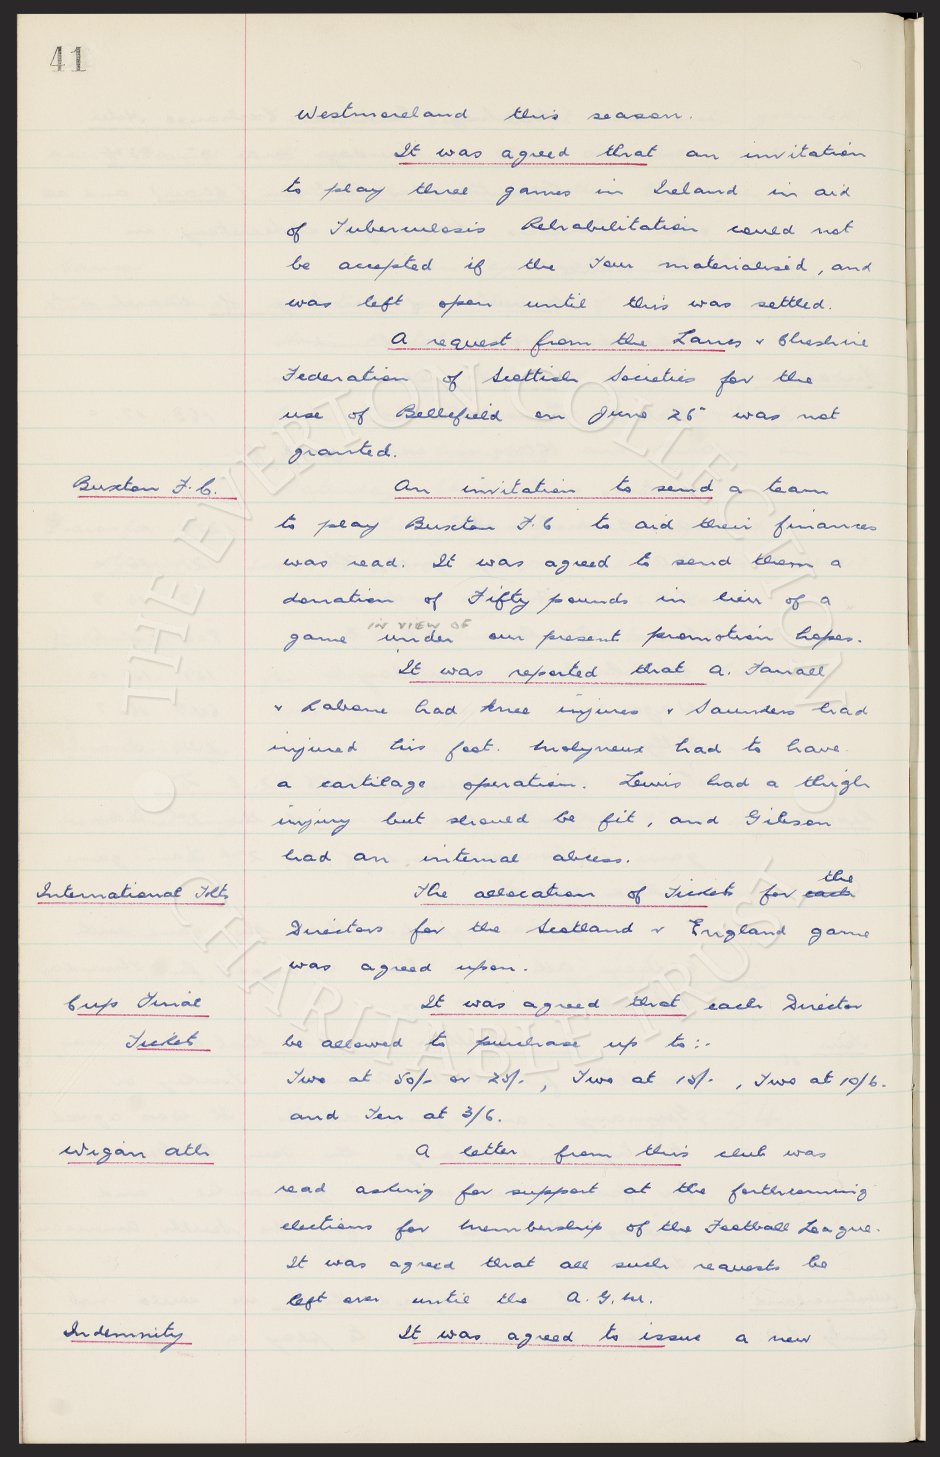 41
Westmoreland this season.
It was agreed that an invitation
to play three games in Ireland in aid
of Tuberculosis Rehabilitation could not
be accepted if the Tour materialised, and
was left open until this was settled.
A request from the Lancs & Cheshire
Federation of Scottish Societies for the
use of Bellefield on June 25 was not
granted.
Buxton F.C. An invitation to send a team
to play Buxton F.C to aid their finances
was read. It was agreed to send them a
donation of Fifty pounds in lieu of a
IN VIEW OF
game under our present promotion hopes.
It was reported that A. Farrall
& Rabone had knee injures & Saunders had
injured his foot. Molyneux had to have
a cartilage operation. Lewis had a thigh
injury but should be fit, and Gibson
had an internal abcess.
the
International Tkts The allocation of Tickets for each
Directors for the Scotland v England game
was agreed upon.
Cup Final It was agreed that each Director
Tickets be allowed to purchase up to:-
Two at 50/- or 25/-, Two at 15/-, Two at 10/6.
and Ten at 3/6.
Wigan Ath A letter from this club was
read asking for support at the forthcoming
elections for membership of the Football League.
It was agreed that all such requests be
left over until the A.G.M.
Indemnity It was agreed to issue a new
THE EVERTON COLLECTION
CHARITABLE TRUST